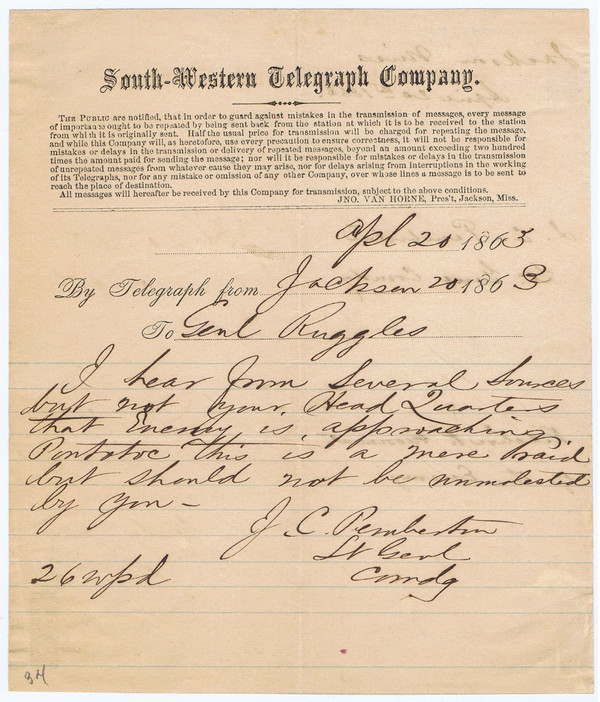 South-Western Telegraph Company.
THE PUBLIC are notified, that in order to guard against mistakes in the transmission of messages, every message
of importance ought to be repeated by being sent back from the station at which it is to be received to the station
from which it is originally sent. Half the usual price for transmission will be charged for repeating the message,
and while this Company will, as heretofore, use every precaution to ensure correctness, it will not be responsible for
mistakes or delays in the transmission or delivery of repeated messages, beyond an amount exceeding two hundred
times the amount paid for sending the message; nor will it be responsible for mistakes or delays in the transmission
of unrepeated messages from whatever cause they may arise, nor for delays arising from interruptions in the working
of its Telegraphs, nor for any mistake or omission of any other Company, over whose lines a message is to be sent to
reach the place of destination.
All messages will hereafter be received by this Company for transmission, subject to the above conditions.
JNO. VAN HORNE, Pres't, Jackson, Miss.
Apl 20 1863
By Telegraph from Jackson 20 1863
To Genl Ruggles
I hear from Several Sources
but not your Head Quarters
that Enemy is approaching
Pontotoc This is a mere Raid
but should not be unmolested
by you -
J. C. Pemberton
Lt Genl
Comdg
26 wpd
34